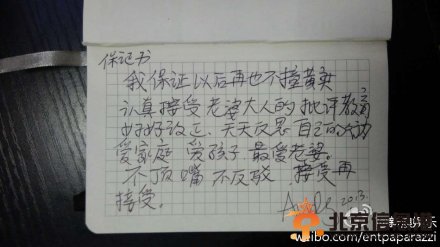 保证书
我保证以后再也不撞黄灯
认真接受老婆大人的批评教育
好好改正、天天反思自己的
爱家庭 爱孩子 最爱老婆。
不顶嘴 不反驳 接受再
接受。
2013.
北京信
weibo.com/entpaparazzi